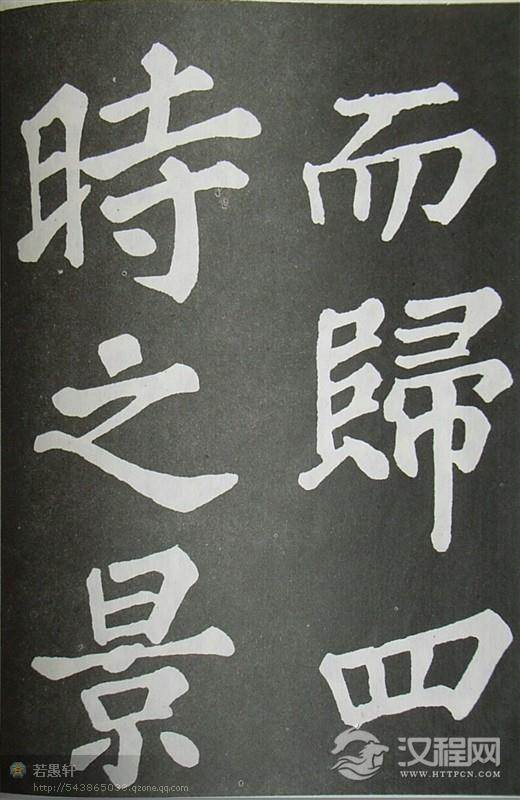 而歸四
時之景
若愚轩
http://543865039.qzone.qq.com
汉程网
WWW.HTTPCN.COM